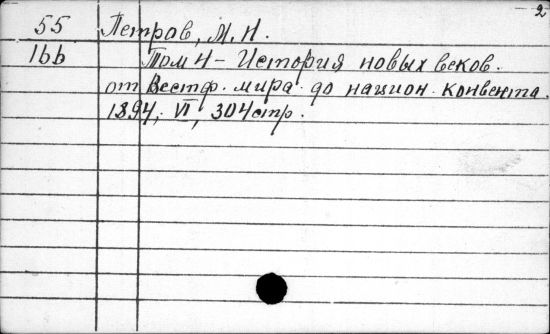 2
55 Петров, М. Н.
166 Том 4 - История новых веков.
от Вестф. мира до национ. конвента.
1894, VI, 304 стр.